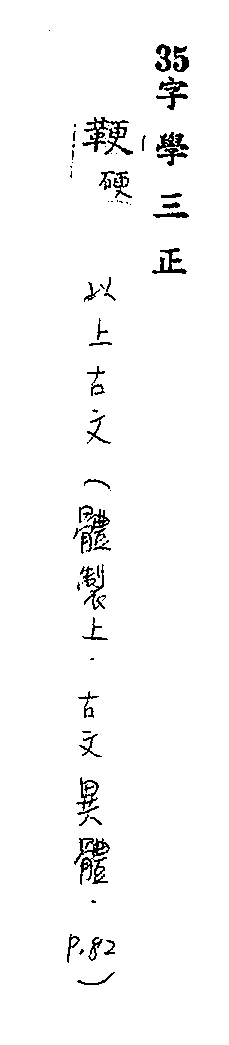 35字學三正
鞕
硬
以上古文(體製上.古文異體.P.82)